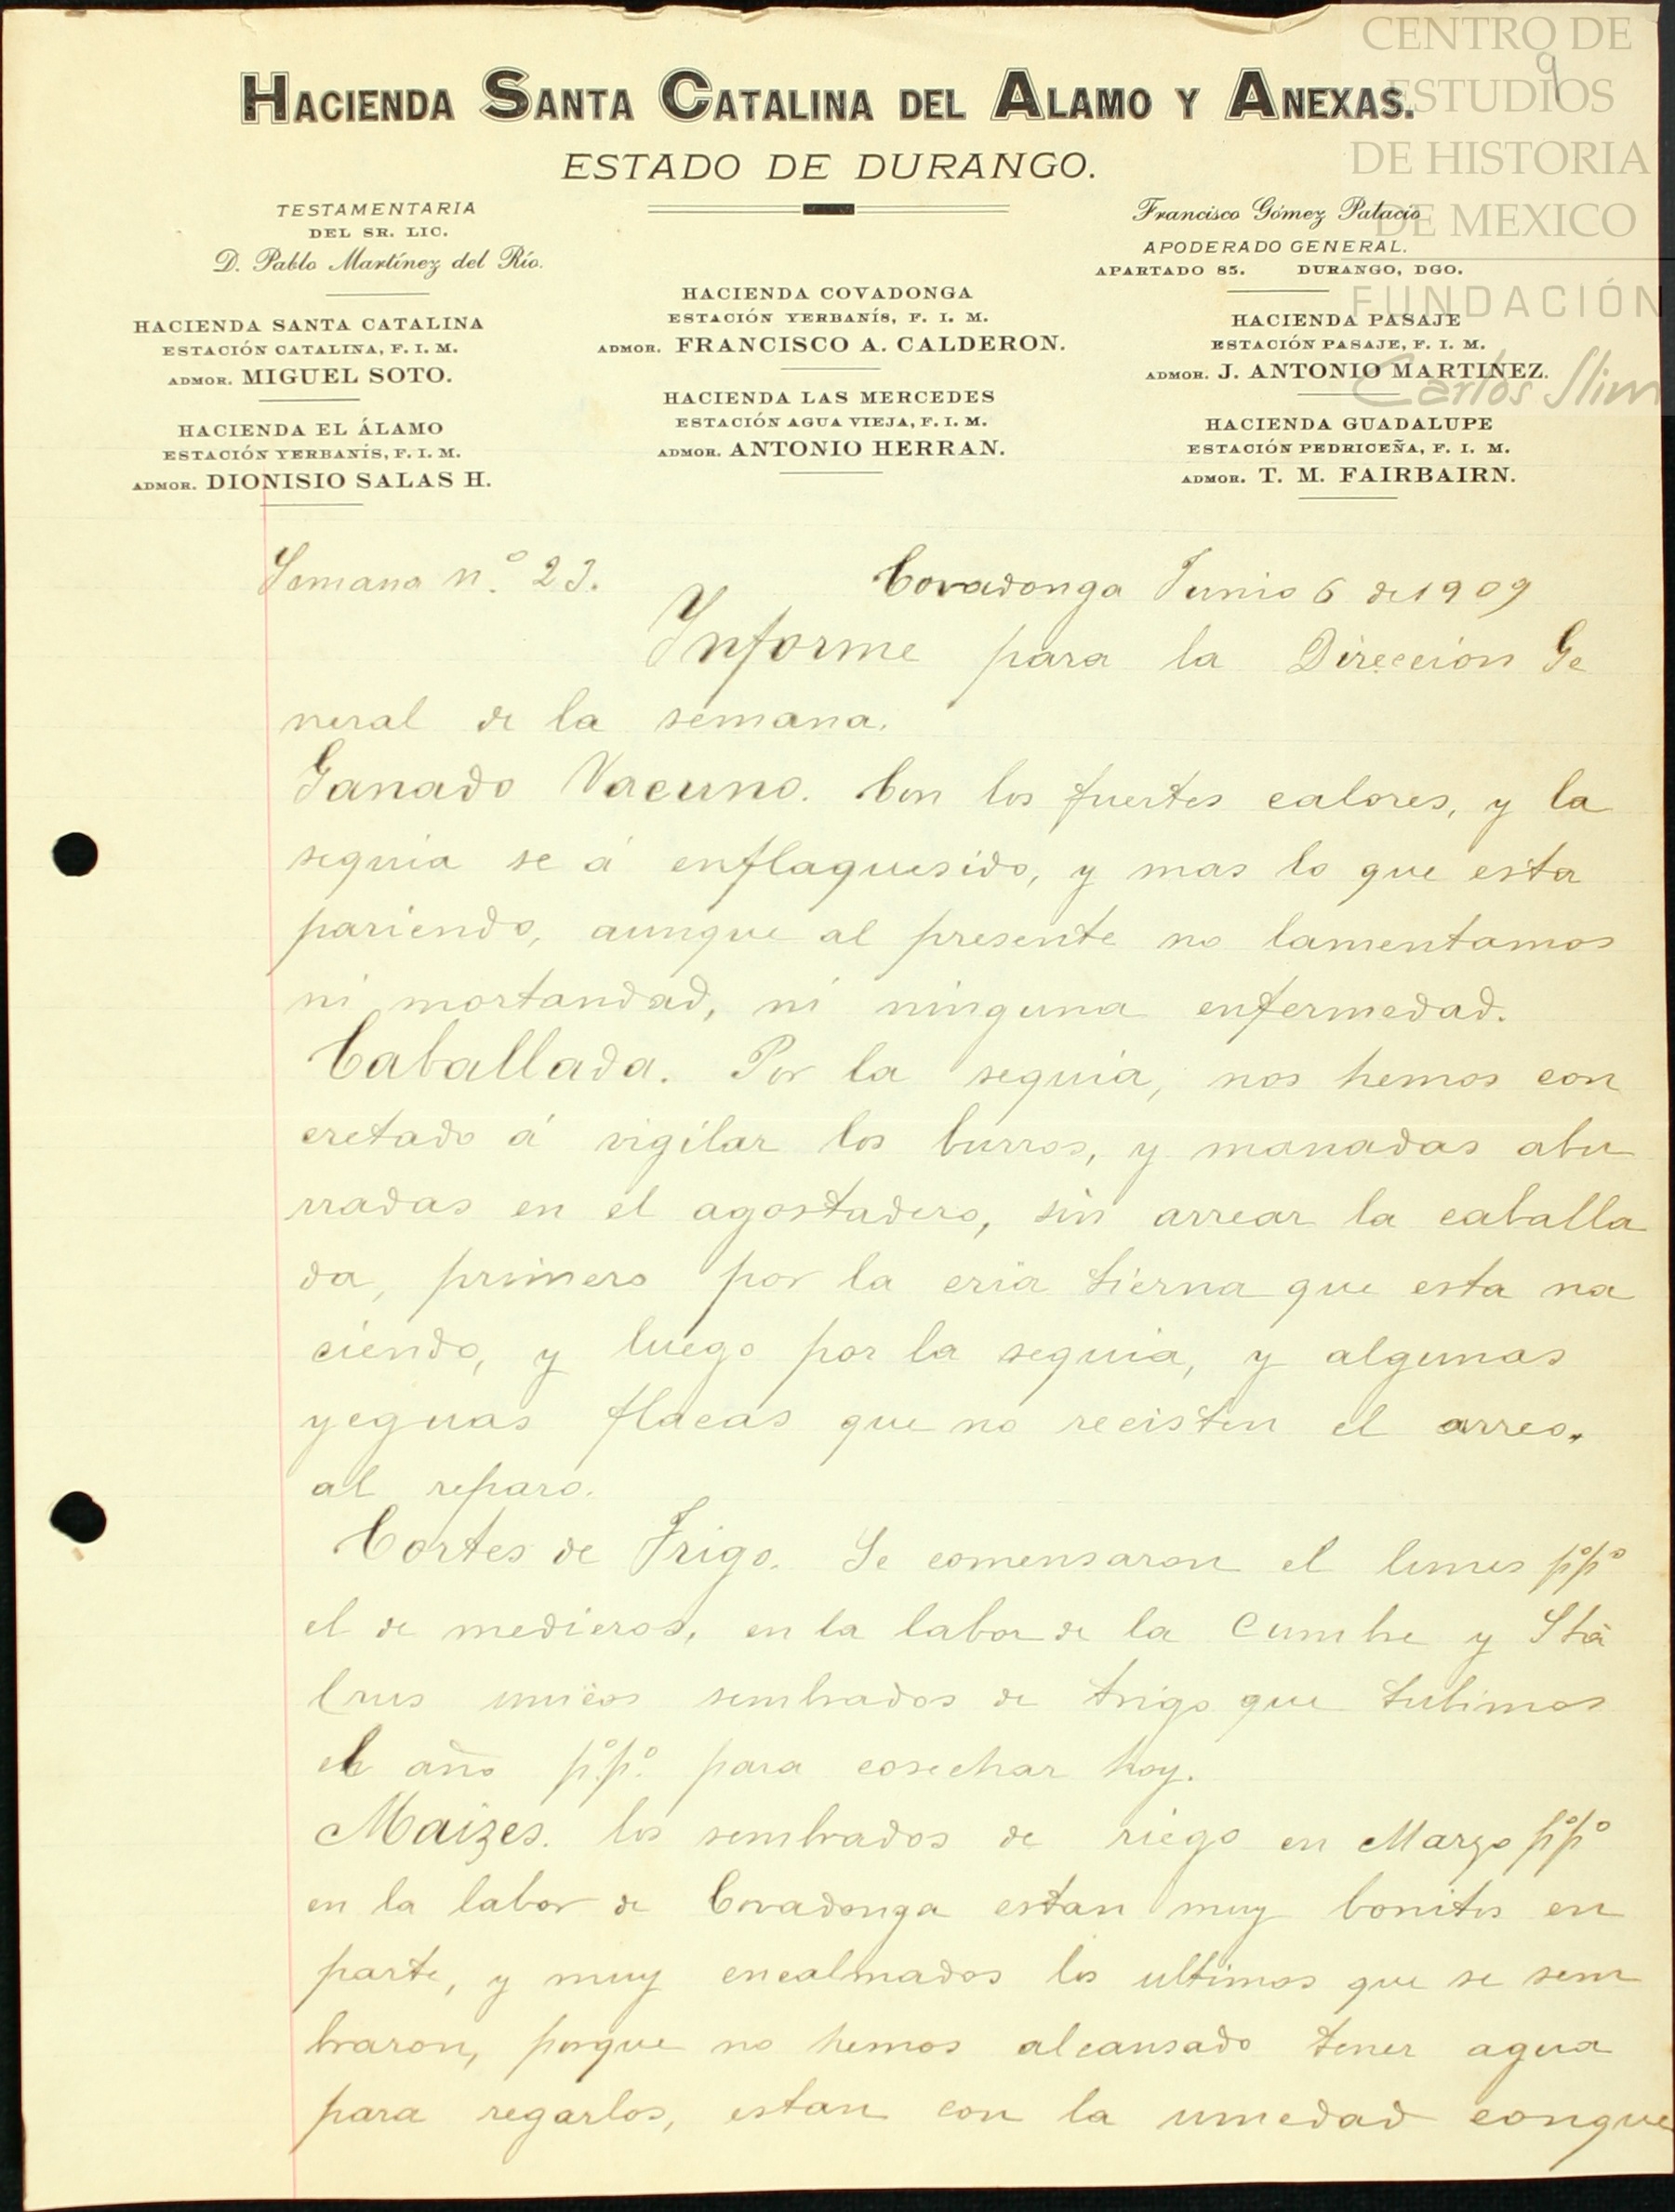 CENTRO DE
ESTUDIOS
DE HISTORIA
DE MEXICO
FUNDACIÓN
Carlos Slim
9
HACIENDA SANTA CATALINA DEL ALAMO Y ANEXAS.
ESTADO DE DURANGO.
TESTAMENTARIA
DEL SR. LIC.
D. Pablo Martínez del Río.
HACIENDA SANTA CATALINA
ESTACIÓN CATALINA, F. I. M.
ADMOR. MIGUEL SOTO.
HACIENDA EL ÁLAMO
ESTACIÓN YERBANÍS, F. I. M.
ADMOR. DIONISIO SALAS H.
HACIENDA COVADONGA
ESTACIÓN YERBANÍS, F. I. M.
ADMOR. FRANCISCO A. CALDERON.
HACIENDA LAS MERCEDES
ESTACIÓN AGUA VIEJA, F. I. M.
ADMOR. ANTONIO HERRAN.
Francisco Gómez Palacio
APODERADO GENERAL.
APARTADO 85. DURANGO, DGO.
HACIENDA PASAJE
ESTACIÓN PASAJE, F. I. M.
ADMOR. J. ANTONIO MARTINEZ.
HACIENDA GUADALUPE
ESTACIÓN PEDRICEÑA, F. I. M.
ADMOR. T. M. FAIRBAIRN.
Semana n.º 23. Covadonga Junio 6 de 1909
Informe para la Dirección Ge
neral de la semana.
Ganado Vacuno. Con los fuertes calores, y la
sequia se á enflaquesido, y mas lo que esta
pariendo, aunque al presente no lamentamos
ni mortandad, ni ninguna enfermedad.
Caballada. Por la sequia, nos hemos con
cretado á vigilar los burros, y manadas abu
rradas en el agostadero, sin arrear la caballa
da, primero por la cria tierna que esta na
ciendo, y luego por la sequia, y algunas
yeguas flacas que no recisten el arreo.
al reparo.
Cortes de Trigo. Se comensaron el lunes p.ºp.º
el de medieros, en la labor de la Cumbre y Sta
Crus unicos sembrados de trigo que tubimos
el año p.ºp.º para cosechar hoy.
Maizes. los sembrados de riego en Marzo p.ºp.º
en la labor de Covadonga estan muy bonitos en
parte, y muy encalmados los ultimos que se sem
braron, porque no hemos alcansado tener agua
para regarlos, estan con la umedad conque